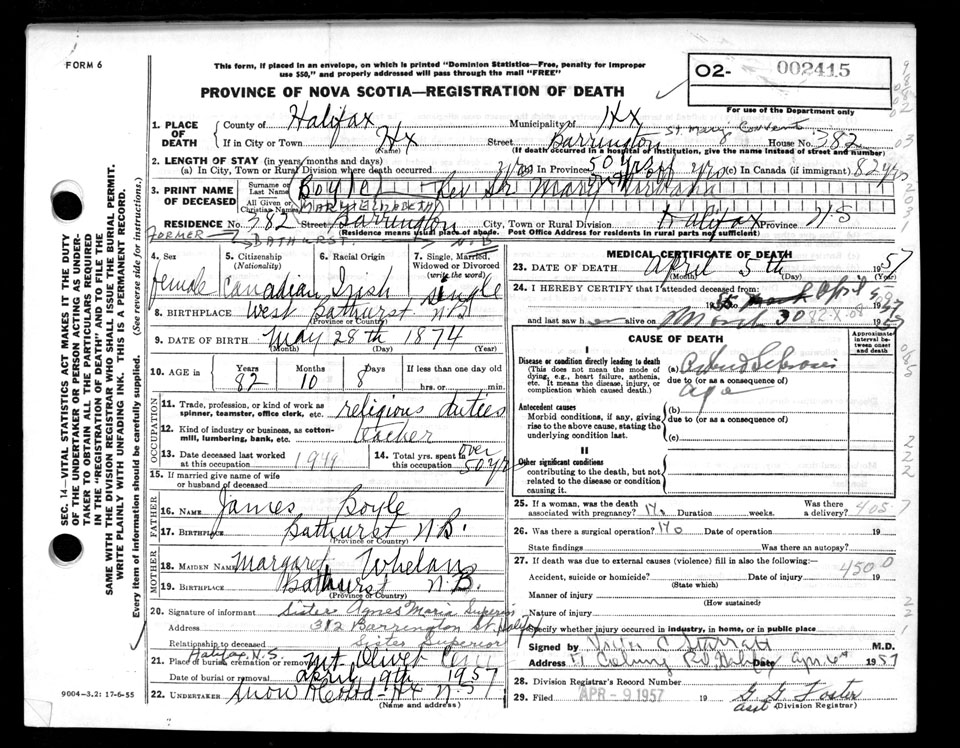 FORM 6
This form, if placed in an envelope, on which is printed "Dominion Statistics—Free, penalty for improper
use $50," and properly addressed will pass through the mail "FREE"
O2- 002415
For use of the Department only
PROVINCE OF NOVA SCOTIA—REGISTRATION OF DEATH
1. PLACE OF DEATH
County of Halifax Municipality of Hx
St. Mary's Convent
If in City or Town Hx (Name) Street Barrington House No. 382
(If death occurred in a hospital or institution, give the name instead of street and number)
2. LENGTH OF STAY (in years, months and days)
(a) In City, Town or Rural Division where death occurred (b) In Province 50 yrs (c) In Canada (if immigrant) 82 yrs
3. PRINT NAME OF DECEASED
Surname or Last Name Boyle Rev Sr Mary
All Given or Christian Names MARY ELIZABETH
RESIDENCE No. 382 Street Barrington City, Town or Rural Division Halifax Province N S
(Residence means usual place of abode. Post Office Address for residents in rural parts not sufficient)
FORMER BATHURST N.B
4. Sex female
5. Citizenship (Nationality) Canadian
6. Racial Origin Irish
7. Single, Married, Widowed or Divorced (write the word) Single
8. BIRTHPLACE West Bathurst N B
(Province or Country)
9. DATE OF BIRTH May 28th 1874
(Month) (Day) (Year)
10. AGE IN Years 82 Months 10 Days 8 If less than one day old
hrs. or min.
OCCUPATION
11. Trade, profession, or kind of work as
spinner, teamster, office clerk, etc. religious duties
12. Kind of industry or business, as cotton-
mill, lumbering, bank, etc. teacher
13. Date deceased last worked
at this occupation 1949
14. Total yrs. spent in
this occupation over 50 yr
15. If married give name of wife
or husband of deceased
FATHER
16. NAME James Boyle
17. BIRTHPLACE Bathurst N B.
(Province or Country)
MOTHER
18. MAIDEN NAME Margaret Whelan
19. BIRTHPLACE Bathurst N.B.
(Province or Country)
20. Signature of informant Sister Agnes Maria Superior
Address 382 Barrington St. Halifax
Relationship to deceased Sister Superior
Halifax, N.S.
21. Place of burial, cremation or removal Mt. Olivet Cem
Date of burial or removal April 9th 1957
22. UNDERTAKER Snow Hx N S
(Name and address)
9004-3,2: 17-6-55
MEDICAL CERTIFICATE OF DEATH
23. DATE OF DEATH April 5th 1957
(Month) (Day) (Year)
24. I HEREBY CERTIFY that I attended deceased from:
to April 5 1957
and last saw h er alive on March 30 1957
82-X-08
CAUSE OF DEATH
Approximate interval between onset and death
I
Disease or condition directly leading to death
(This does not mean the mode of
dying, e.g., heart failure, asthenia,
etc. It means the disease, injury, or
complication which caused death.)
(a)
due to (or as a consequence of)
age
Antecedent causes
Morbid conditions, if any, giving
rise to the above cause, stating the
underlying condition last.
(b)
due to (or as a consequence of)
(c)
II
Other significant conditions
contributing to the death, but not
related to the disease or condition
causing it.
25. If a woman, was the death
associated with pregnancy? no Duration weeks. Was there a delivery?
26. Was there a surgical operation? no Date of operation 19
State findings Was there an autopsy?
27. If death was due to external causes (violence) fill in also the following:—
4500
Accident, suicide or homicide? Date of injury 19
(State which)
Manner of injury
(How sustained)
Nature of injury
Specify whether injury occurred in industry, in home, or in public place
Signed by M.D.
Address Date Apr. 6th 1957
28. Division Registrar's Record Number
29. Filed APR - 9 1957 19 G. G. Foster
asst (Division Registrar)
SEC. 14—VITAL STATISTICS ACT MAKES IT THE DUTY
OF THE UNDERTAKER OR PERSON ACTING AS UNDER-
TAKER TO OBTAIN ALL THE PARTICULARS REQUIRED
IN THE "REGISTRATION OF DEATH" AND TO FILE THE
SAME WITH THE DIVISION REGISTRAR WHO SHALL ISSUE THE BURIAL PERMIT.
WRITE PLAINLY WITH UNFADING INK. THIS IS A PERMANENT RECORD.
Every item of information should be carefully supplied. (See reverse side for instructions.)